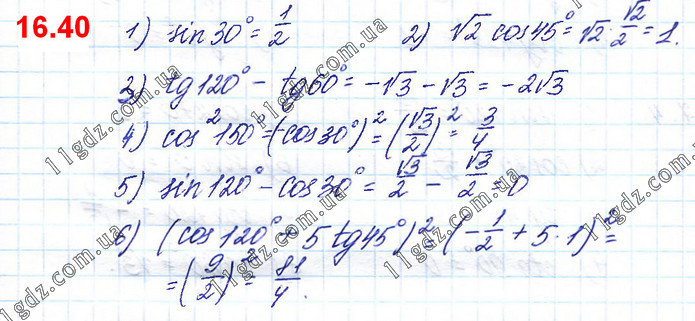 16.40 1) sin 30° = 1/2 2) √2 cos 45° = √2 · √2/2 = 1.
3) tg 120° - tg 60° = -√3 - √3 = -2√3
4) cos² 150° = (cos 30°)² = (√3/2)² = 3/4
5) sin 120° - cos 30° = √3/2 - √3/2 = 0
6) (cos 120° + 5 tg 45°)² = (-1/2 + 5·1)² =
= (9/2)² = 81/4.
11gdz.com.ua
11gdz.com.ua
11gdz.com.ua
11gdz.com.ua
11gdz.com.ua
11gdz.com.ua